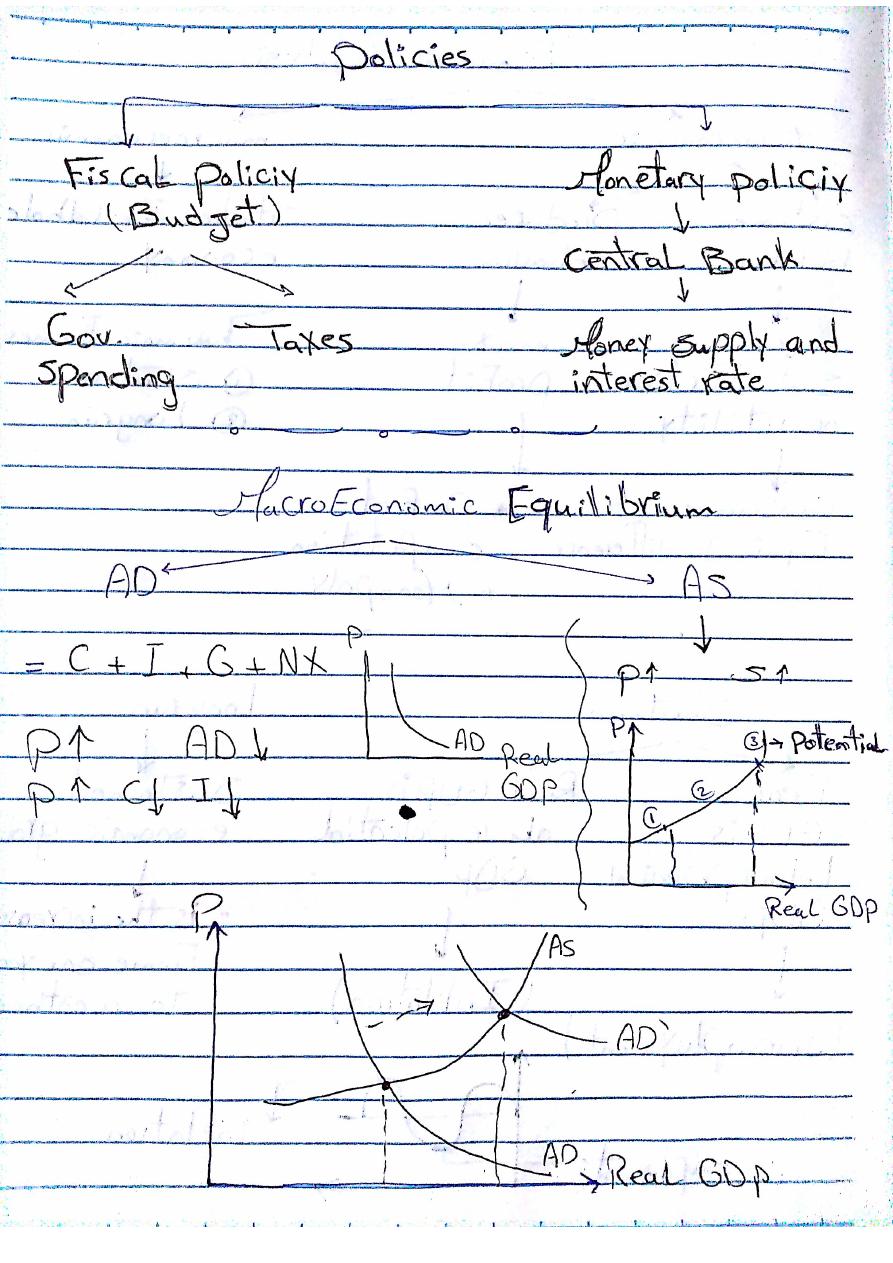 Policies
Fiscal policiy
Monetary policiy
(Budget)
Central Bank
Gov.
Spending
Taxes
Money supply and
interest rate
MacroEconomic Equilibrium
AD
AS
= C + I + G + NX
P
AD
Real
GDP
P↑ S↑
P↑ AD↓
P↑ C↓ I↓
P
① ② ③→ Potential
Real GDP
P
AS
AD`
AD
Real GDP